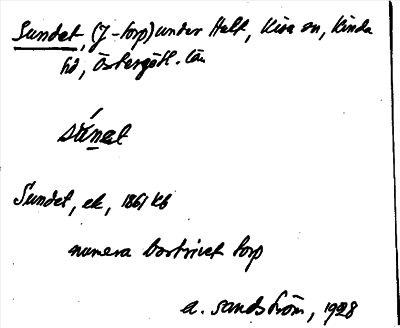 Sundet, (J-torp) under Halt, Kisa sn, Kinda
hd, Östergötl. län
súnet
Sundet, ek, 1861 kb
numera bortrivet torp
A. Sandström, 1928